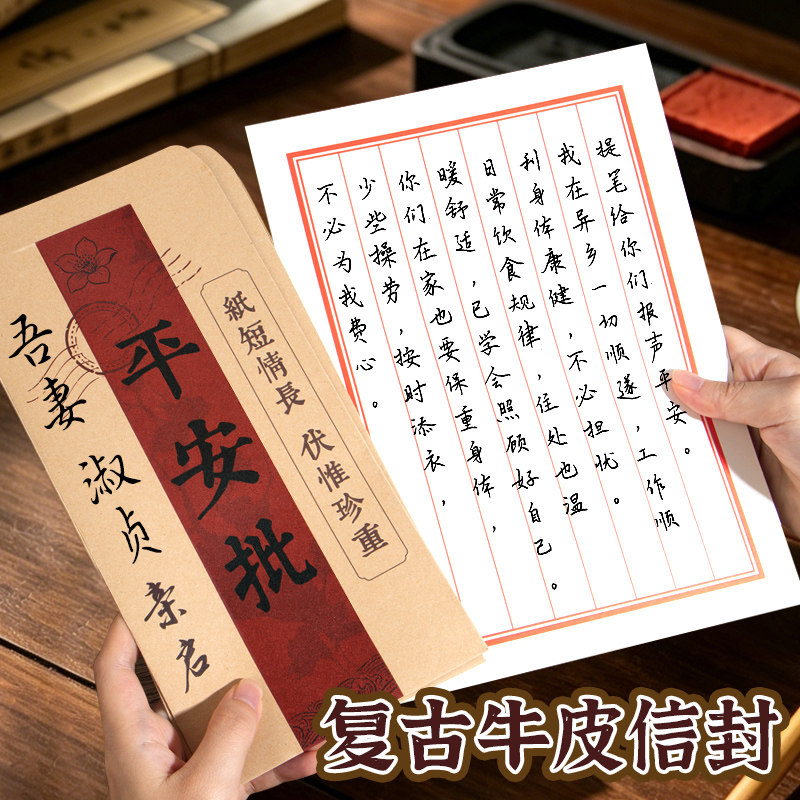 紙短情長 伏惟珍重
平安批
吾妻淑贞亲启
提笔给你们报声平安。
我在异乡一切顺遂，工作顺
利身体康健，不必担忧。
日常饮食规律，住处也温
暖舒适，已学会照顾好自己。
你们在家也要保重身体，
少些操劳，按时添衣，
不必为我费心。
复古牛皮信封